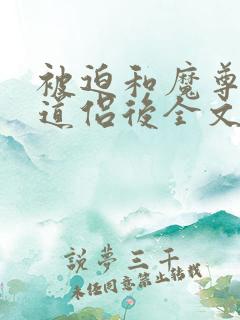 被迫和魔尊
道侣後全文
說夢三千
未经同意禁止转载